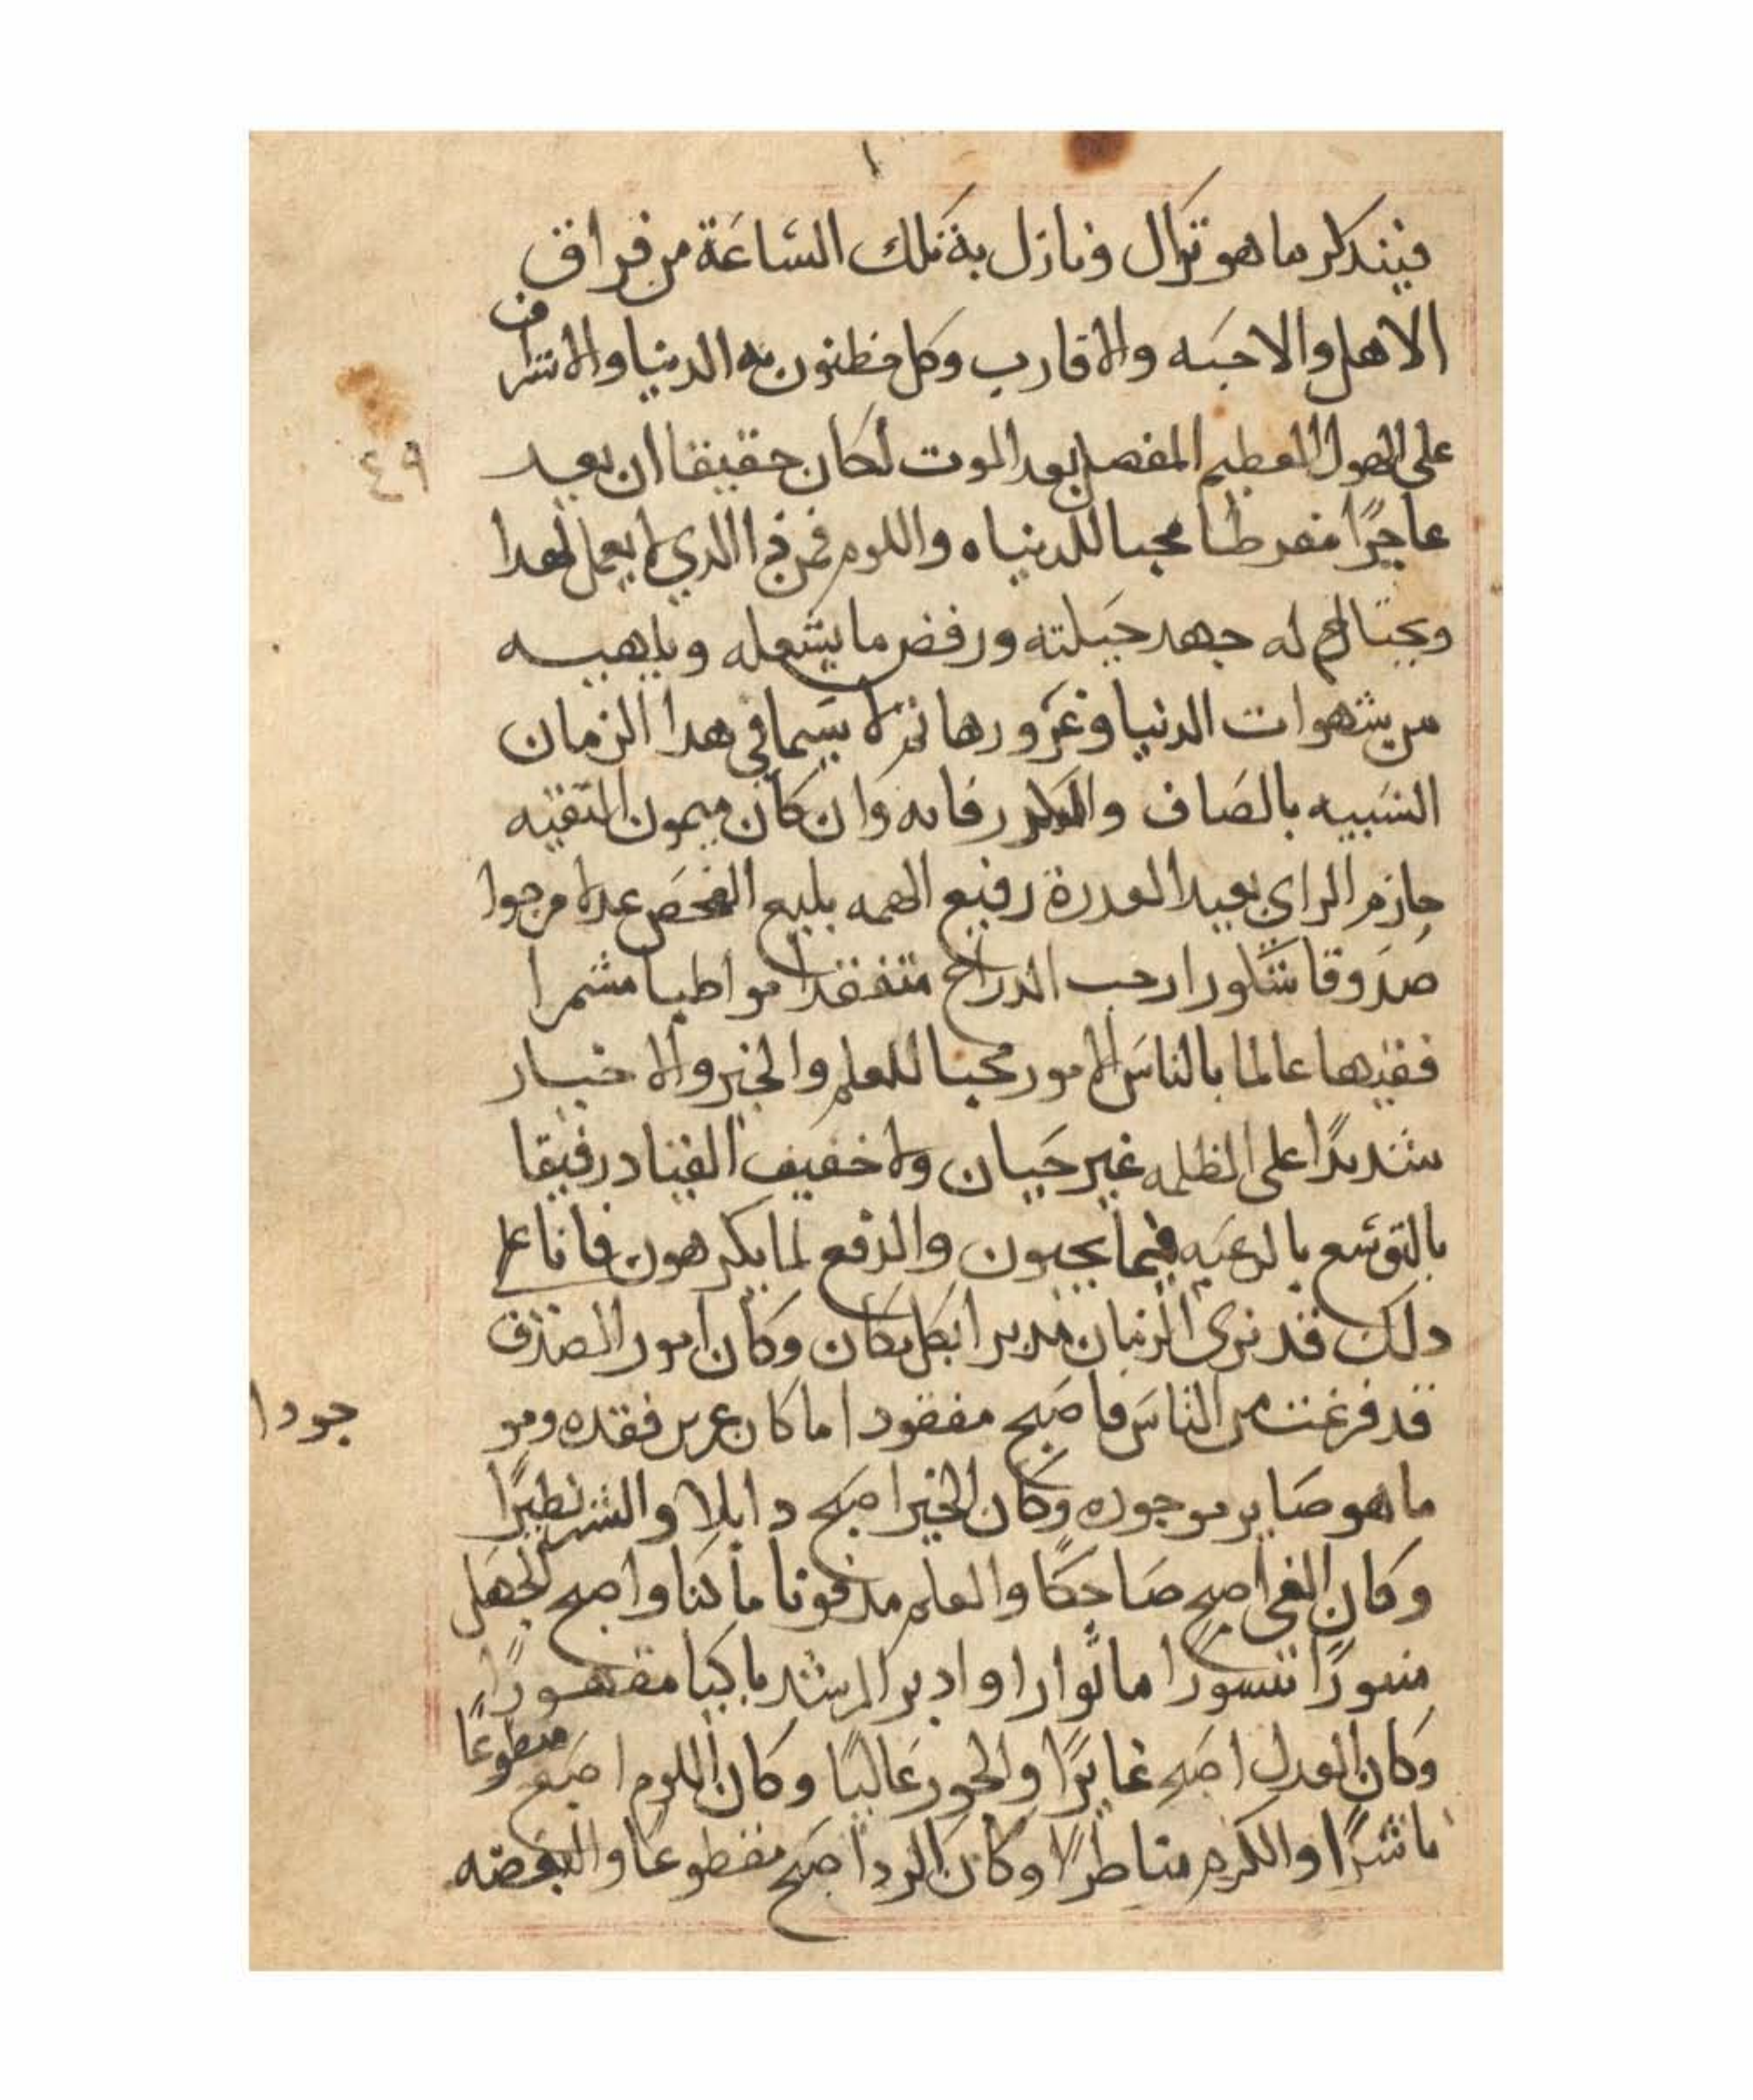 فيتذكر ما هو نزال ونازل به تلك الساعة من فراق
الاهل والاحبه والاقارب وكل مظنون به الدنيا والاشراف
على الهول العظيم المفصل بعد الموت لكان حقيقا ان يعد
٤٩
عاجزًا مفرطا محبا للدنياه واللوم فمن ذا الدي لا يعمل لهدا
ويحتال له جهد حيلته ورفض ما يشعله ويلهيه
من شهوات الدنيا وغرورها ثم لا سيما في هدا الزمان
الشبيه بالصاف والمكدر فانه وان كان ميمون التقيه
حازم الراي بعيد العدرة رفيع الهمه بليع الفحص عدلا مرجوا
صدوقا شكورا رحب الدراع متفقدا مواطبا مشمرا
فقيها عالما بالناس الامور محبا للعلم والخير والاخيار
شديدًا على الظلمه غير حبان ولا خفيف القياد رفيقا
بالتوسع بالرعيه فيما يحبون والدفع لما يكرهون فانا على
دلك قد نرى الزمان مدبرا بكل مكان وكان امور الصدق
قد فرغت من الناس فاصبح مفقودا ما كان عزيز فقده ومو
جودا
ما هو صاير موجوده وكان الخير اصبح دابلا والشر نطيرًا
وكان الغي اصبح صاحكًا والعلم مدفونا ماكنا واصبح الجهل
منسورًا ما ثوارا وادبر الرشد باكيا مقهورًا
وكان العدل اصبح غايرًا والجور غالبًا وكان اللوم اصبح
ماشرًا والكرم متاطرًا وكان الرد اصبح مقطوعا والبغضه